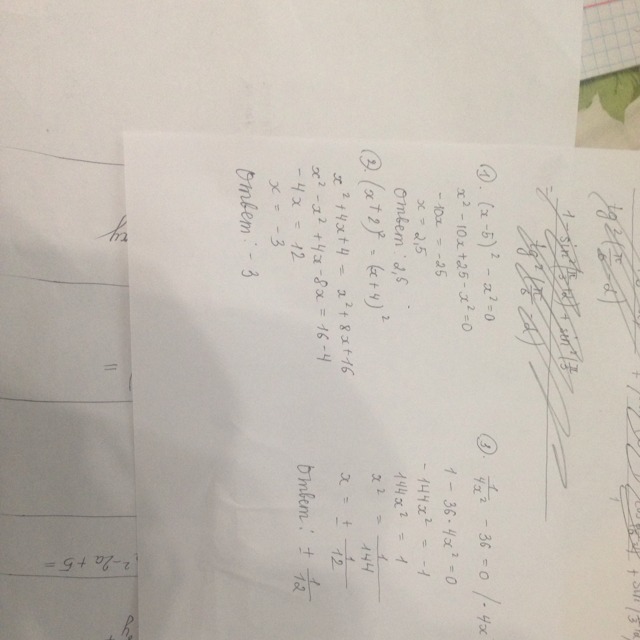 1. (x-5)² - x² = 0
x² - 10x + 25 - x² = 0
-10x = -25
x = 2,5
Ответ: 2,5
2 (x+2)² = (x+4)²
x² + 4x + 4 = x² + 8x + 16
x² - x² + 4x - 8x = 16-4
-4x = 12
x = -3
Ответ: -3
3 - 36 = 0 / · 4x
1 - 36 · 4x² = 0
-144x² = -1
144x² = 1
x² = 1/144
x = ± 1/12
Ответ: ± 1/12
² - 2a + 5 =